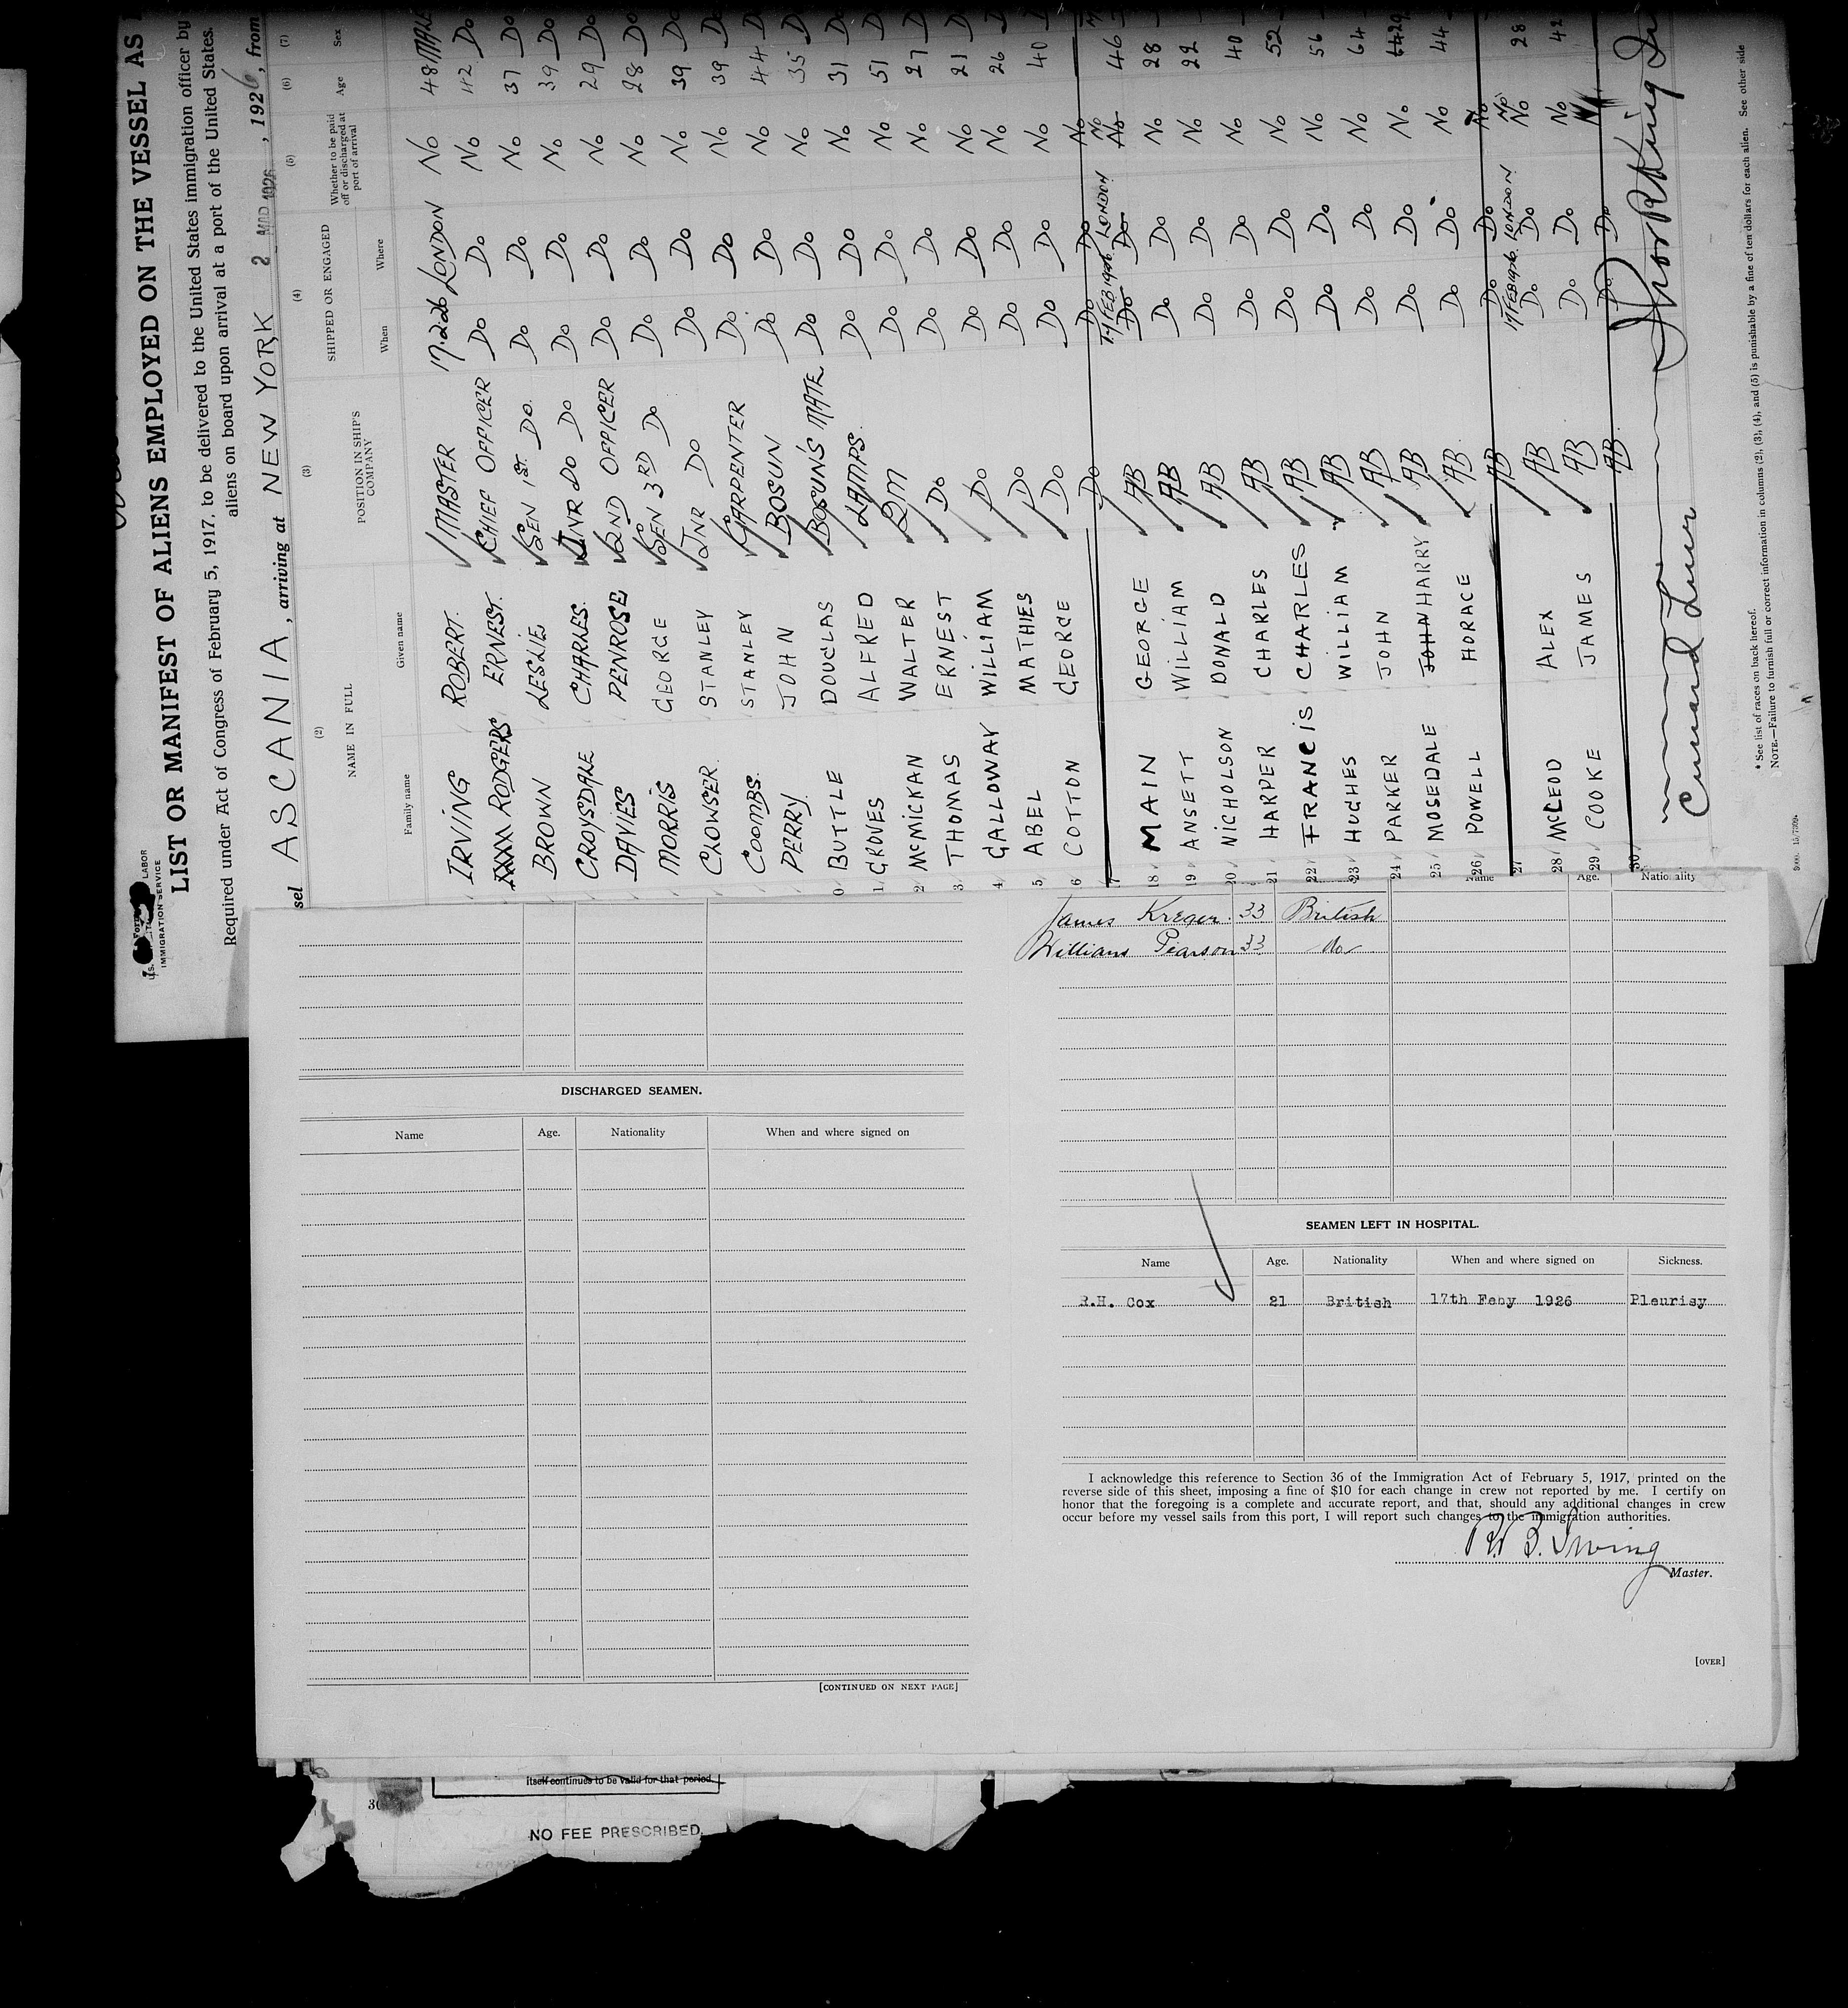 LIST OR MANIFEST OF ALIENS EMPLOYED ON THE VESSEL AS
Required under Act of Congress of February 5, 1917, to be delivered to the United States immigration officer by
aliens on board upon arrival at a port of the United States.
LABOR
IMMIGRATION SERVICE
sel ASCANIA, arriving at NEW YORK 2 MAR 1926, 1926, from
(2) (3) (4) (5) (6) (7)
NAME IN FULL
Family name Given name
POSITION IN SHIP'S COMPANY
SHIPPED OR ENGAGED
When Where
Whether to be paid off or discharged at port of arrival
Age Sex
IRVING ROBERT. MASTER 17.2.26 LONDON No 48 MALE
XXXX RODGERS ERNEST. CHIEF OFFICER Do Do No 42 Do
BROWN LESLIE SEN 1ST Do. Do Do No 37 Do
CROYSDALE CHARLES. JNR Do Do Do Do No 39 Do
DAVIES PENROSE 2ND OFFICER Do Do No 29 Do
MORRIS GEORGE SEN 3RD Do Do Do No 28 Do
CLOWSER STANLEY JNR DO Do Do No 39 Do
COOMBS. STANLEY CARPENTER Do Do No 39 Do
PERRY. JOHN BOSUN Do Do No 44 Do
0 BUTTLE DOUGLAS BOSUN'S MATE Do Do No 35 Do
1 GROVES ALFRED LAMPS. Do Do No 31 Do
2 McMICKAN WALTER QM Do Do No 51 Do
3 THOMAS ERNEST Do Do Do No 27 Do
4 GALLOWAY WILLIAM Do Do Do No 21 Do
5 ABEL MATHIES Do Do Do No 26 Do
6 COTTON GEORGE Do Do Do No 40 Do
7 Do Do Do No
18 MAIN GEORGE AB 17 FEB 1926 LONDON Do Do No No 46
19 ANSETT WILLIAM AB Do Do No 28
20 NICHOLSON DONALD AB Do Do No 22
21 HARPER CHARLES AB Do Do No 40
22 FRANCIS CHARLES AB Do Do No 52
23 HUGHES WILLIAM AB Do Do No 56
24 PARKER JOHN AB Do Do No 64
25 MOSEDALE JOHN HARRY AB Do Do No 64 29
26 POWELL HORACE AB Do Do No 44
27 AB Do Do No
28 McLEOD ALEX AB 17 FEB 1926 LONDON Do Do No No 28
29 COOKE JAMES AB Do Do No 42
30 AB Do Do
Cunard Liner
* See list of races on back hereof.
NOTE.—Failure to furnish full or correct information in columns (2), (3), (4), and (5) is punishable by a fine of ten dollars for each alien. See other side
Name Age. Nationality
James Kreger. 33 British
William Pearson 33 do
DISCHARGED SEAMEN.
Name Age. Nationality When and where signed on
[CONTINUED ON NEXT PAGE]
SEAMEN LEFT IN HOSPITAL.
Name Age. Nationality When and where signed on Sickness.
R.H. Cox 21 British 17th Feby 1926 Pleurisy
I acknowledge this reference to Section 36 of the Immigration Act of February 5, 1917, printed on the
reverse side of this sheet, imposing a fine of $10 for each change in crew not reported by me. I certify on
honor that the foregoing is a complete and accurate report, and that, should any additional changes in crew
occur before my vessel sails from this port, I will report such changes to the immigration authorities.
R. B. Irving
Master.
[OVER]
itself continues to be valid for that period.
NO FEE PRESCRIBED.